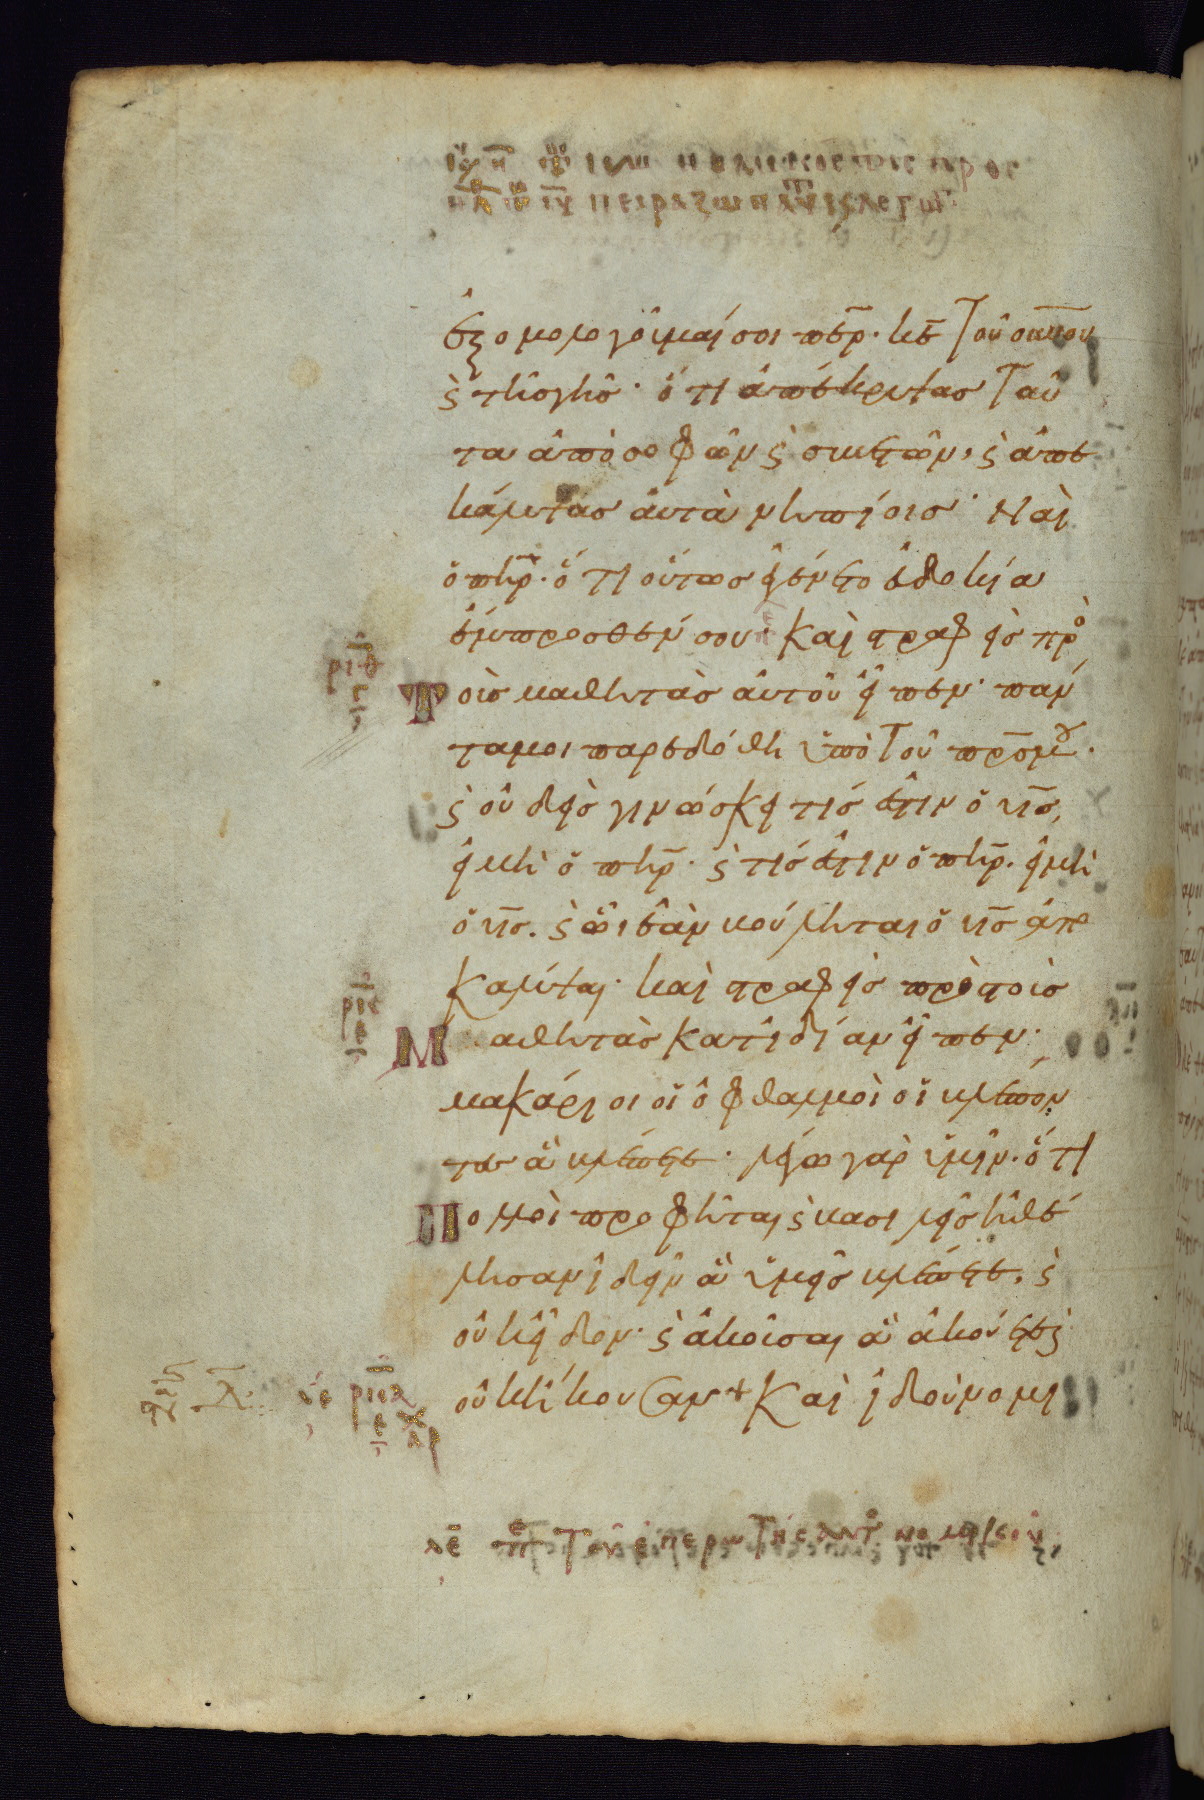 ἐξομολογοῦμαί σοι περ̅. κε̅ τοῦ οὐνου̅
ϛ τῆς γῆς· ὅτι ἀπέκρυψας ταῦ
τα ἀπὸ σοφῶν ϛ συνετῶν, ϛ ἀπε
κάλυψας αὐτὰ νηπίοις· Ναὶ
ὁ πηρ̅. ὅτι οὕτως ἐγένετο εὐδοκία
ἔμπροσθέν σου· Καὶ στραφεὶς πρὸ
Τοὺς μαθητὰς αὐτοῦ εἶπεν· πάν
τα μοι παρεδόθη ὑπὸ τοῦ πρ̅ς μου.
ϛ οὐδεὶς γινώσκει τίς ἐστιν ὁ υἱς̅,
εἰ μὴ ὁ πηρ̅. ϛ τίς ἐστιν ὁ πηρ̅. εἰ μὴ
ὁ υἱς̅. ϛ ᾧ ἐὰν βούληται ὁ υἱς̅ ἀπο
καλύψαι. καὶ στραφεὶς πρὸς τοὺς
Μαθητὰς κατ' ἰδίαν εἶπεν·
μακάριοι οἱ ὀφθαλμοὶ οἱ βλέπον
τες ἃ βλέπετε. λέγω γὰρ ὑμῖν. ὅτι
Πολλοὶ προφῆται ϛ βασιλεῖς ἠθέ
λησαν ἰδεῖν ἃ ὑμεῖς βλέπετε, ϛ
οὐκ εἶδον. ϛ ἀκοῦσαι ἃ ἀκούετε ϛ
οὐκ ἤκουσαν + Καὶ ἰδοὺ νομι
λε̅ π τοῦ ἐπερωτήσαντ νομικοῦ